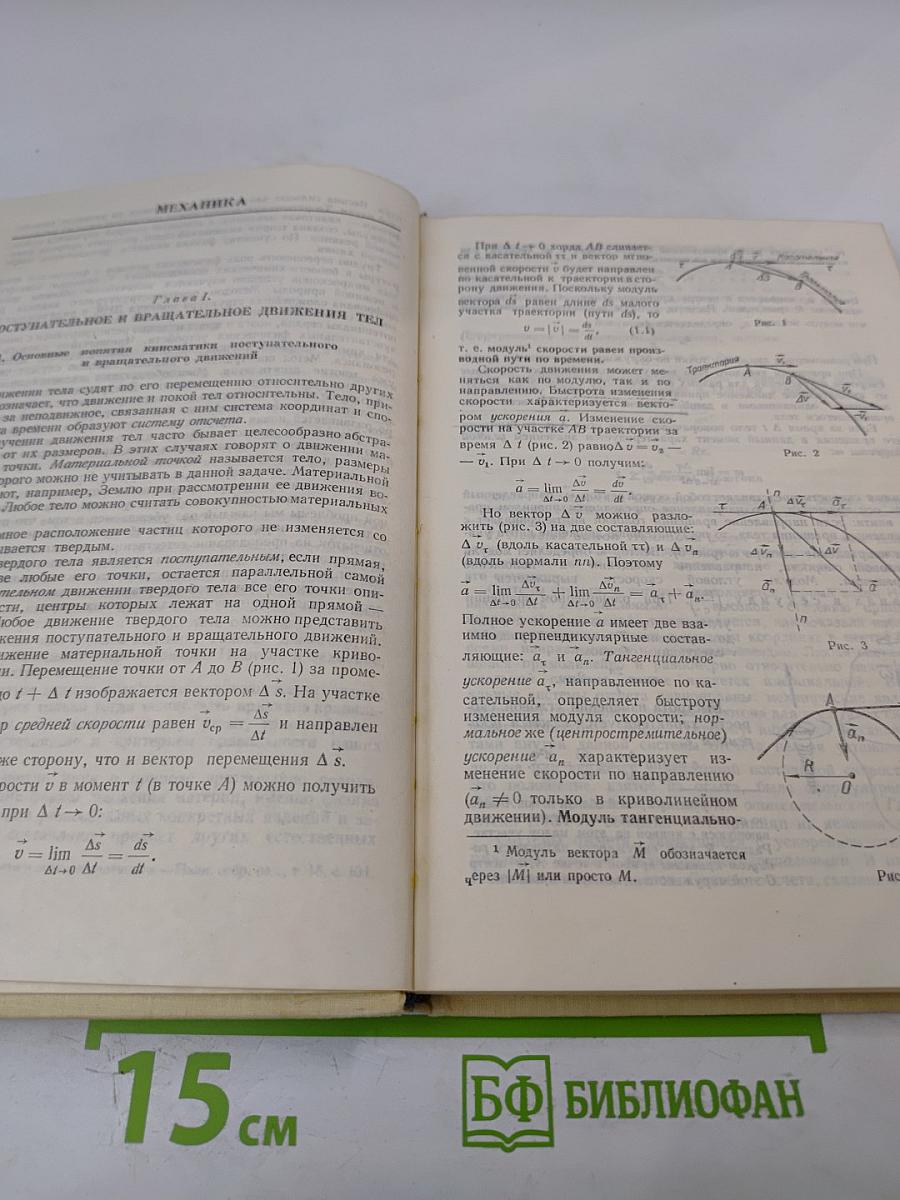 МЕХАНИКА
Глава I.
ОСТУПАТЕЛЬНОЕ И ВРАЩАТЕЛЬНОЕ ДВИЖЕНИЯ ТЕЛ
Основные понятия кинематики поступательного
и вращательного движений
ижении тела судят по его перемещению относительно других
означает, что движение и покой тел относительны. Тело, при-
за неподвижное, связанная с ним система координат и спо-
а времени образуют систему отсчета.
учении движения тел часто бывает целесообразно абстра-
от их размеров. В этих случаях говорят о движении ма-
точки. Материальной точкой называется тело, размеры
орого можно не учитывать в данной задаче. Материальной
ют, например, Землю при рассмотрении ее движения во-
Любое тело можно считать совокупностью материальных
мное расположение частиц которого не изменяется со
ывается твердым.
вердого тела является поступательным, если прямая,
ве любые его точки, остается параллельной самой
ательном движении твердого тела все его точки опи-
сти, центры которых лежат на одной прямой —
Любое движение твердого тела можно представить
жения поступательного и вращательного движений.
ижение материальной точки на участке криво-
и. Перемещение точки от A до B (рис. 1) за проме-
до t + Δ t изображается вектором Δ s⃗. На участке
р средней скорости равен v⃗ср = Δs⃗/Δt и направлен
же сторону, что и вектор перемещения Δ s⃗.
рости v⃗ в момент t (в точке A) можно получить
при Δ t → 0:
v⃗ = lim Δt→0 Δs⃗/Δt = ds⃗/dt.
При Δ t → 0 хорда AB сливает-
ся с касательной ττ и вектор мгно-
венной скорости v⃗ будет направлен
по касательной к траектории в сто-
рону движения. Поскольку модуль
вектора ds⃗ равен длине ds малого
участка траектории (пути ds), то
v = |v⃗| = ds/dt, (1.1)
т. е. модуль¹ скорости равен произ-
водной пути по времени.
Скорость движения может ме-
няться как по модулю, так и по
направлению. Быстрота изменения
скорости характеризуется векто-
ром ускорения a⃗. Изменение ско-
рости на участке AB траектории за
время Δ t (рис. 2) равно Δ v⃗ = v⃗₂ —
— v⃗₁. При Δ t → 0 получим:
a⃗ = lim Δt→0 Δv⃗/Δt = dv⃗/dt.
Но вектор Δ v⃗ можно разло-
жить (рис. 3) на две составляющие:
Δ v⃗τ (вдоль касательной ττ) и Δ v⃗n
(вдоль нормали nn). Поэтому
a⃗ = lim Δt→0 Δv⃗τ/Δt + lim Δt→0 Δv⃗n/Δt = a⃗τ + a⃗n.
Полное ускорение a⃗ имеет две вза-
имно перпендикулярные состав-
ляющие: a⃗τ и a⃗n. Тангенциальное
ускорение a⃗τ, направленное по ка-
сательной, определяет быстроту
изменения модуля скорости; нор-
мальное же (центростремительное)
ускорение a⃗n характеризует из-
менение скорости по направлению
(a⃗n ≠ 0 только в криволинейном
движении). Модуль тангенциально-
¹ Модуль вектора M⃗ обозначается
через |M⃗| или просто M.
τ A ds⃗ v⃗ Касательная τ
Δs⃗ B
Рис. 1
Траектория A v⃗₁
B Δv⃗ v⃗₂ v⃗₁
Рис. 2
n
τ A Δv⃗τ a⃗τ τ
Δv⃗n Δv⃗
a⃗n a⃗
n
Рис. 3
A
a⃗n
R
O
Рис
15 см
БФ БИБЛИОФАН